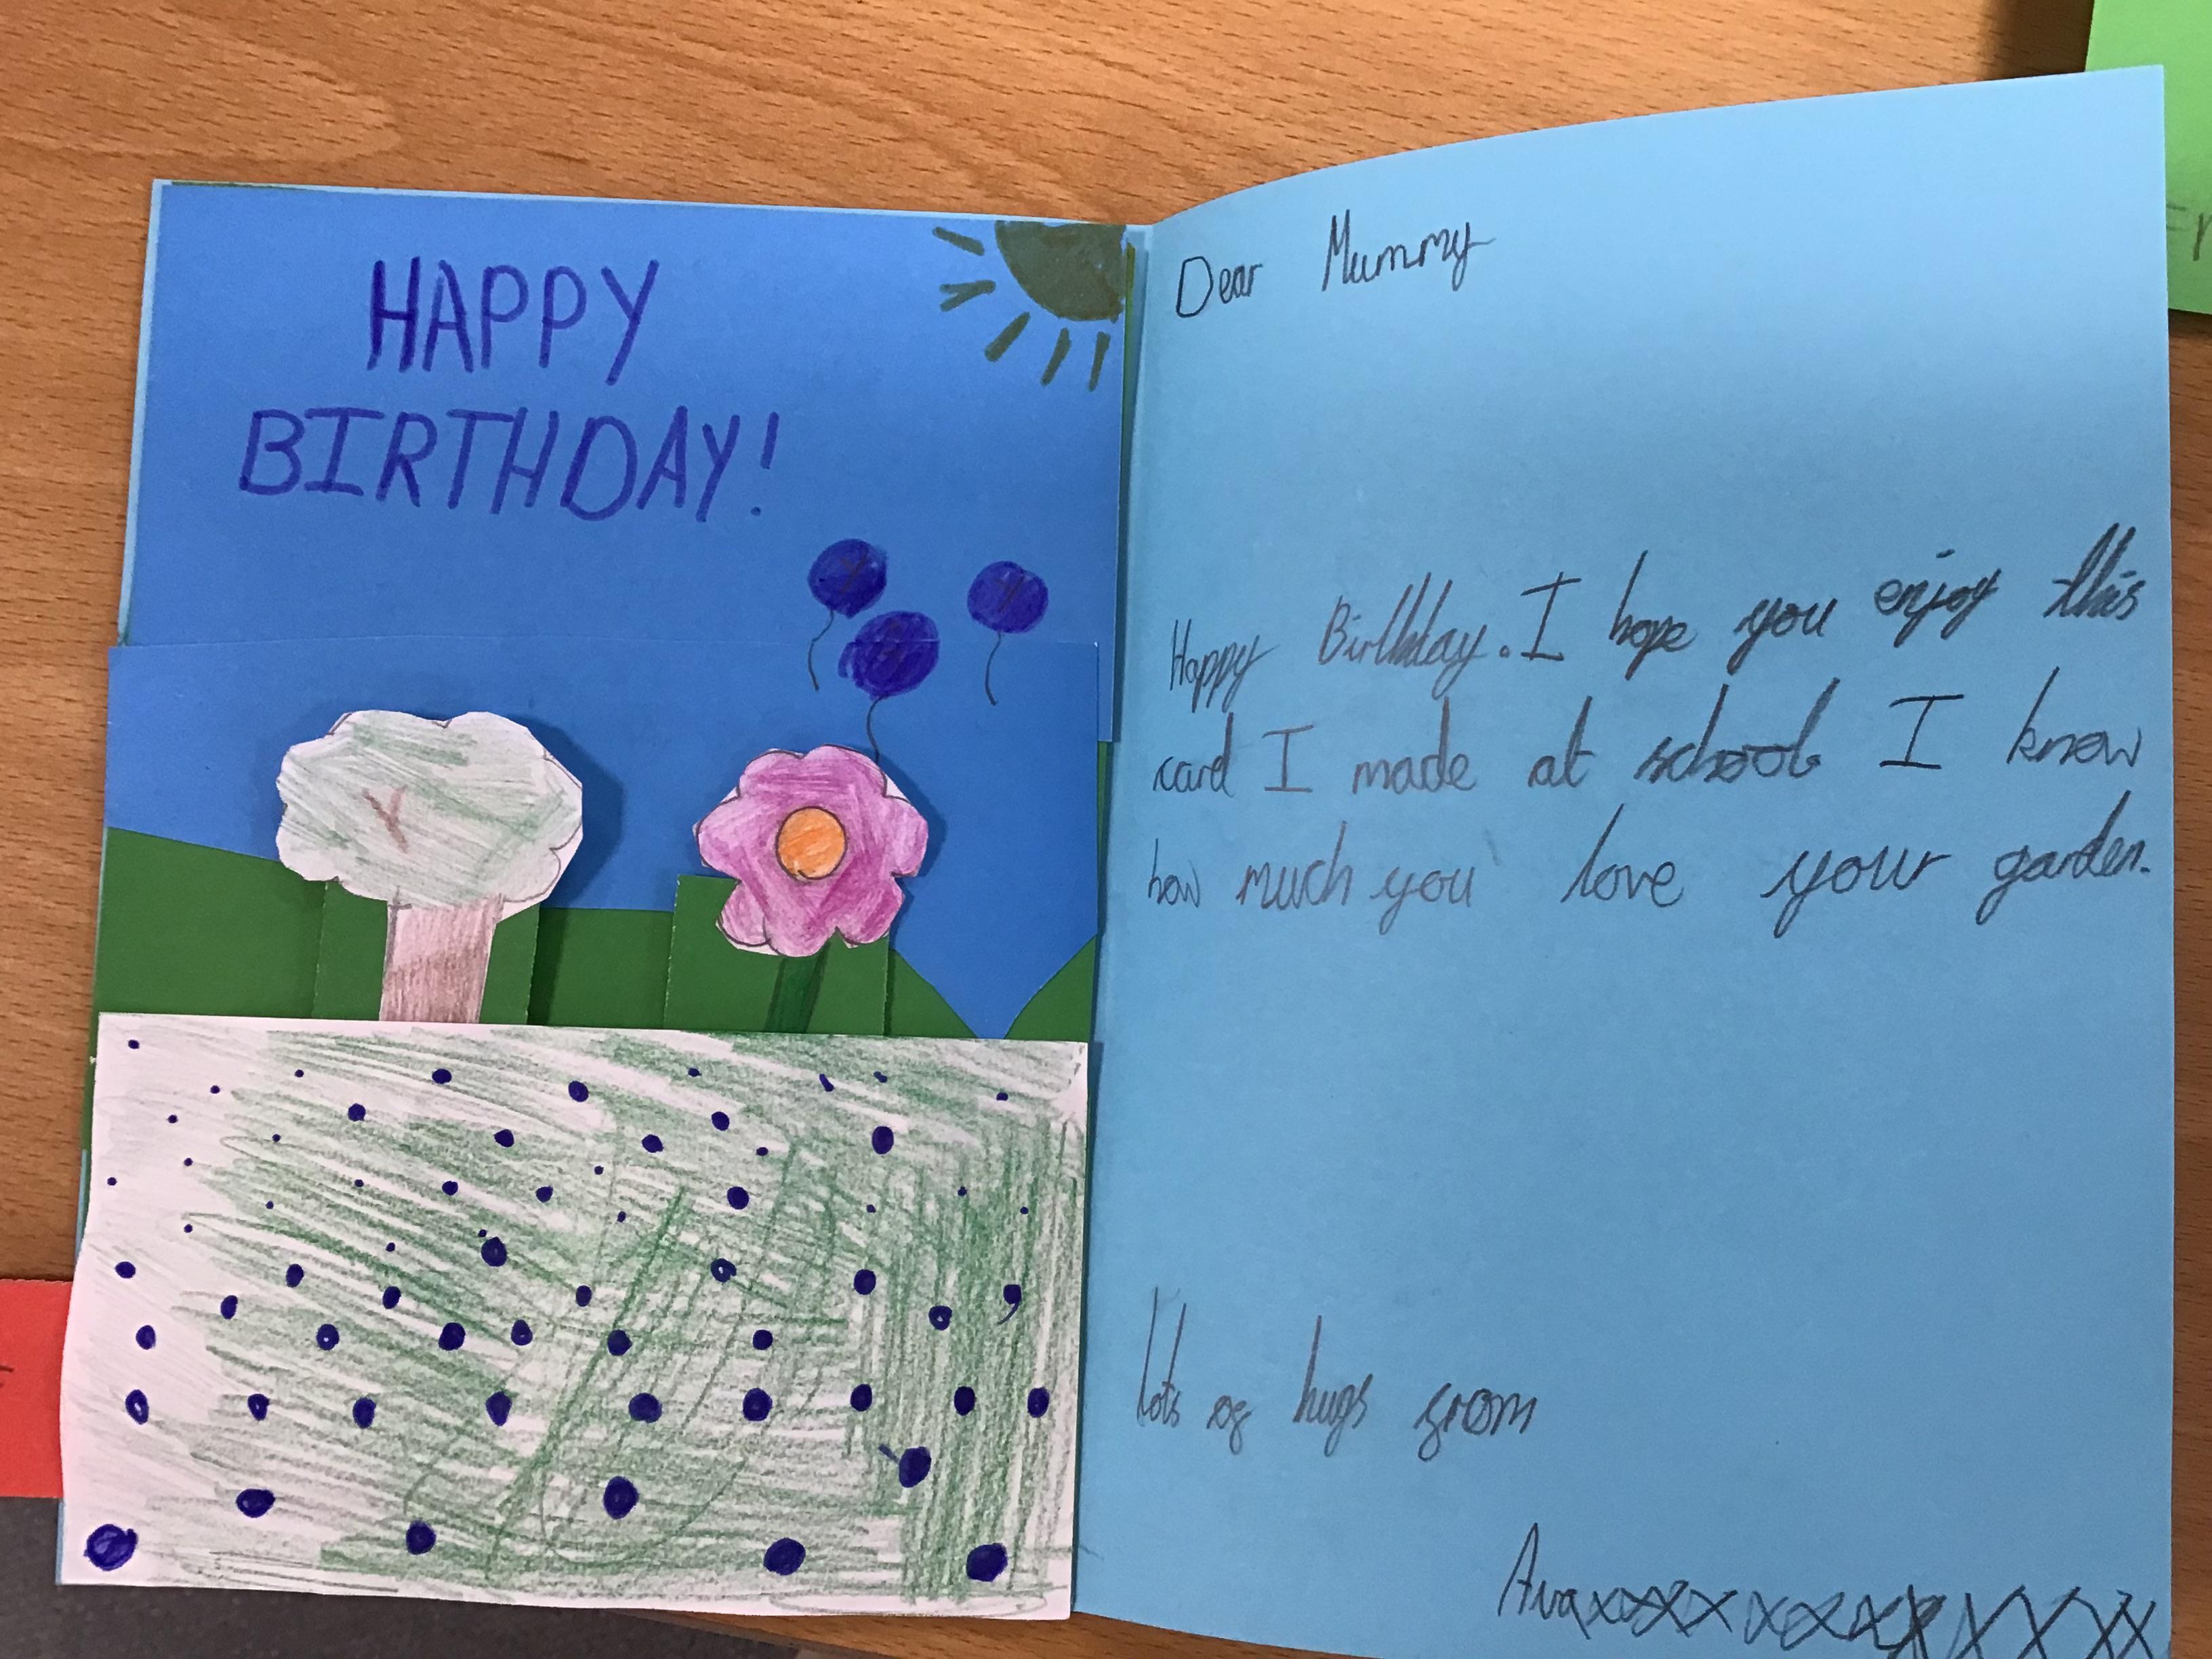 HAPPY
BIRTHDAY!
Dear Mummy
Happy Birthday. I hope you enjoy this
card I made at school I know
how much you love your garden.
lots of hugs from
Avaxxxxxxxxxxxxxx